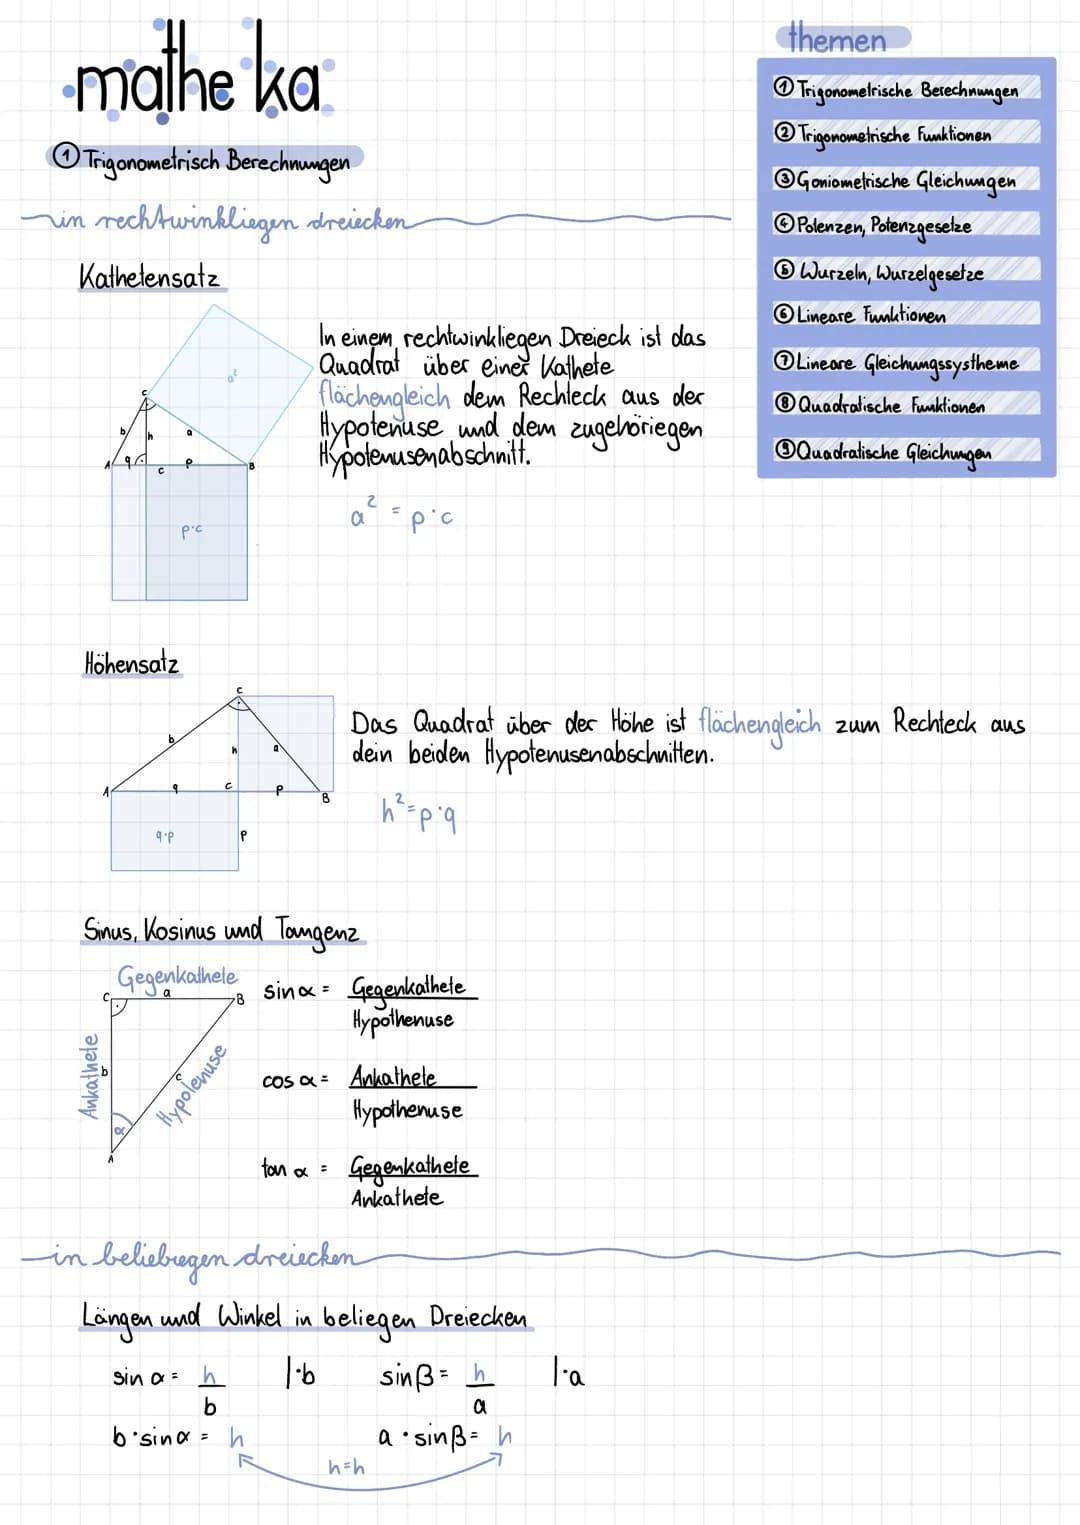 mathe ka
themen
① Trigonometrische Berechnungen
② Trigonometrische Funktionen
③ Goniometrische Gleichungen
④ Potenzen, Potenzgesetze
⑤ Wurzeln, Wurzelgesetze
⑥ Lineare Funktionen
⑦ Lineare Gleichungssystheme
⑧ Quadratische Funktionen
⑨ Quadratische Gleichungen
① Trigonometrisch Berechnungen
in rechtwinkliegen dreiecken
Kathetensatz
a²
C
b
h
a
A
q
c
p
B
p·c
In einem rechtwinkliegen Dreieck ist das
Quadrat über einer Kathete
flächengleich dem Rechteck aus der
Hypotenuse und dem zugehöriegen
Hypotenusenabschnitt.
a² = p·c
Höhensatz
C
b
h
a
A
q
c
p
B
q·p
p
Das Quadrat über der Höhe ist flächengleich zum Rechteck aus
dein beiden Hypotenusenabschnitten.
h²=p·q
Sinus, Kosinus und Tangenz
Gegenkathete
C
a
B
Ankathete
b
c
Hypotenuse
α
A
sin α = Gegenkathete
Hypothenuse
cos α = Ankathete
Hypothenuse
tan α = Gegenkathete
Ankathete
in beliebiegen dreiecken
Längen und Winkel in beliegen Dreiecken
sin α = h |·b sin β = h |·a
b a
b·sin α = h a·sin β = h
h=h